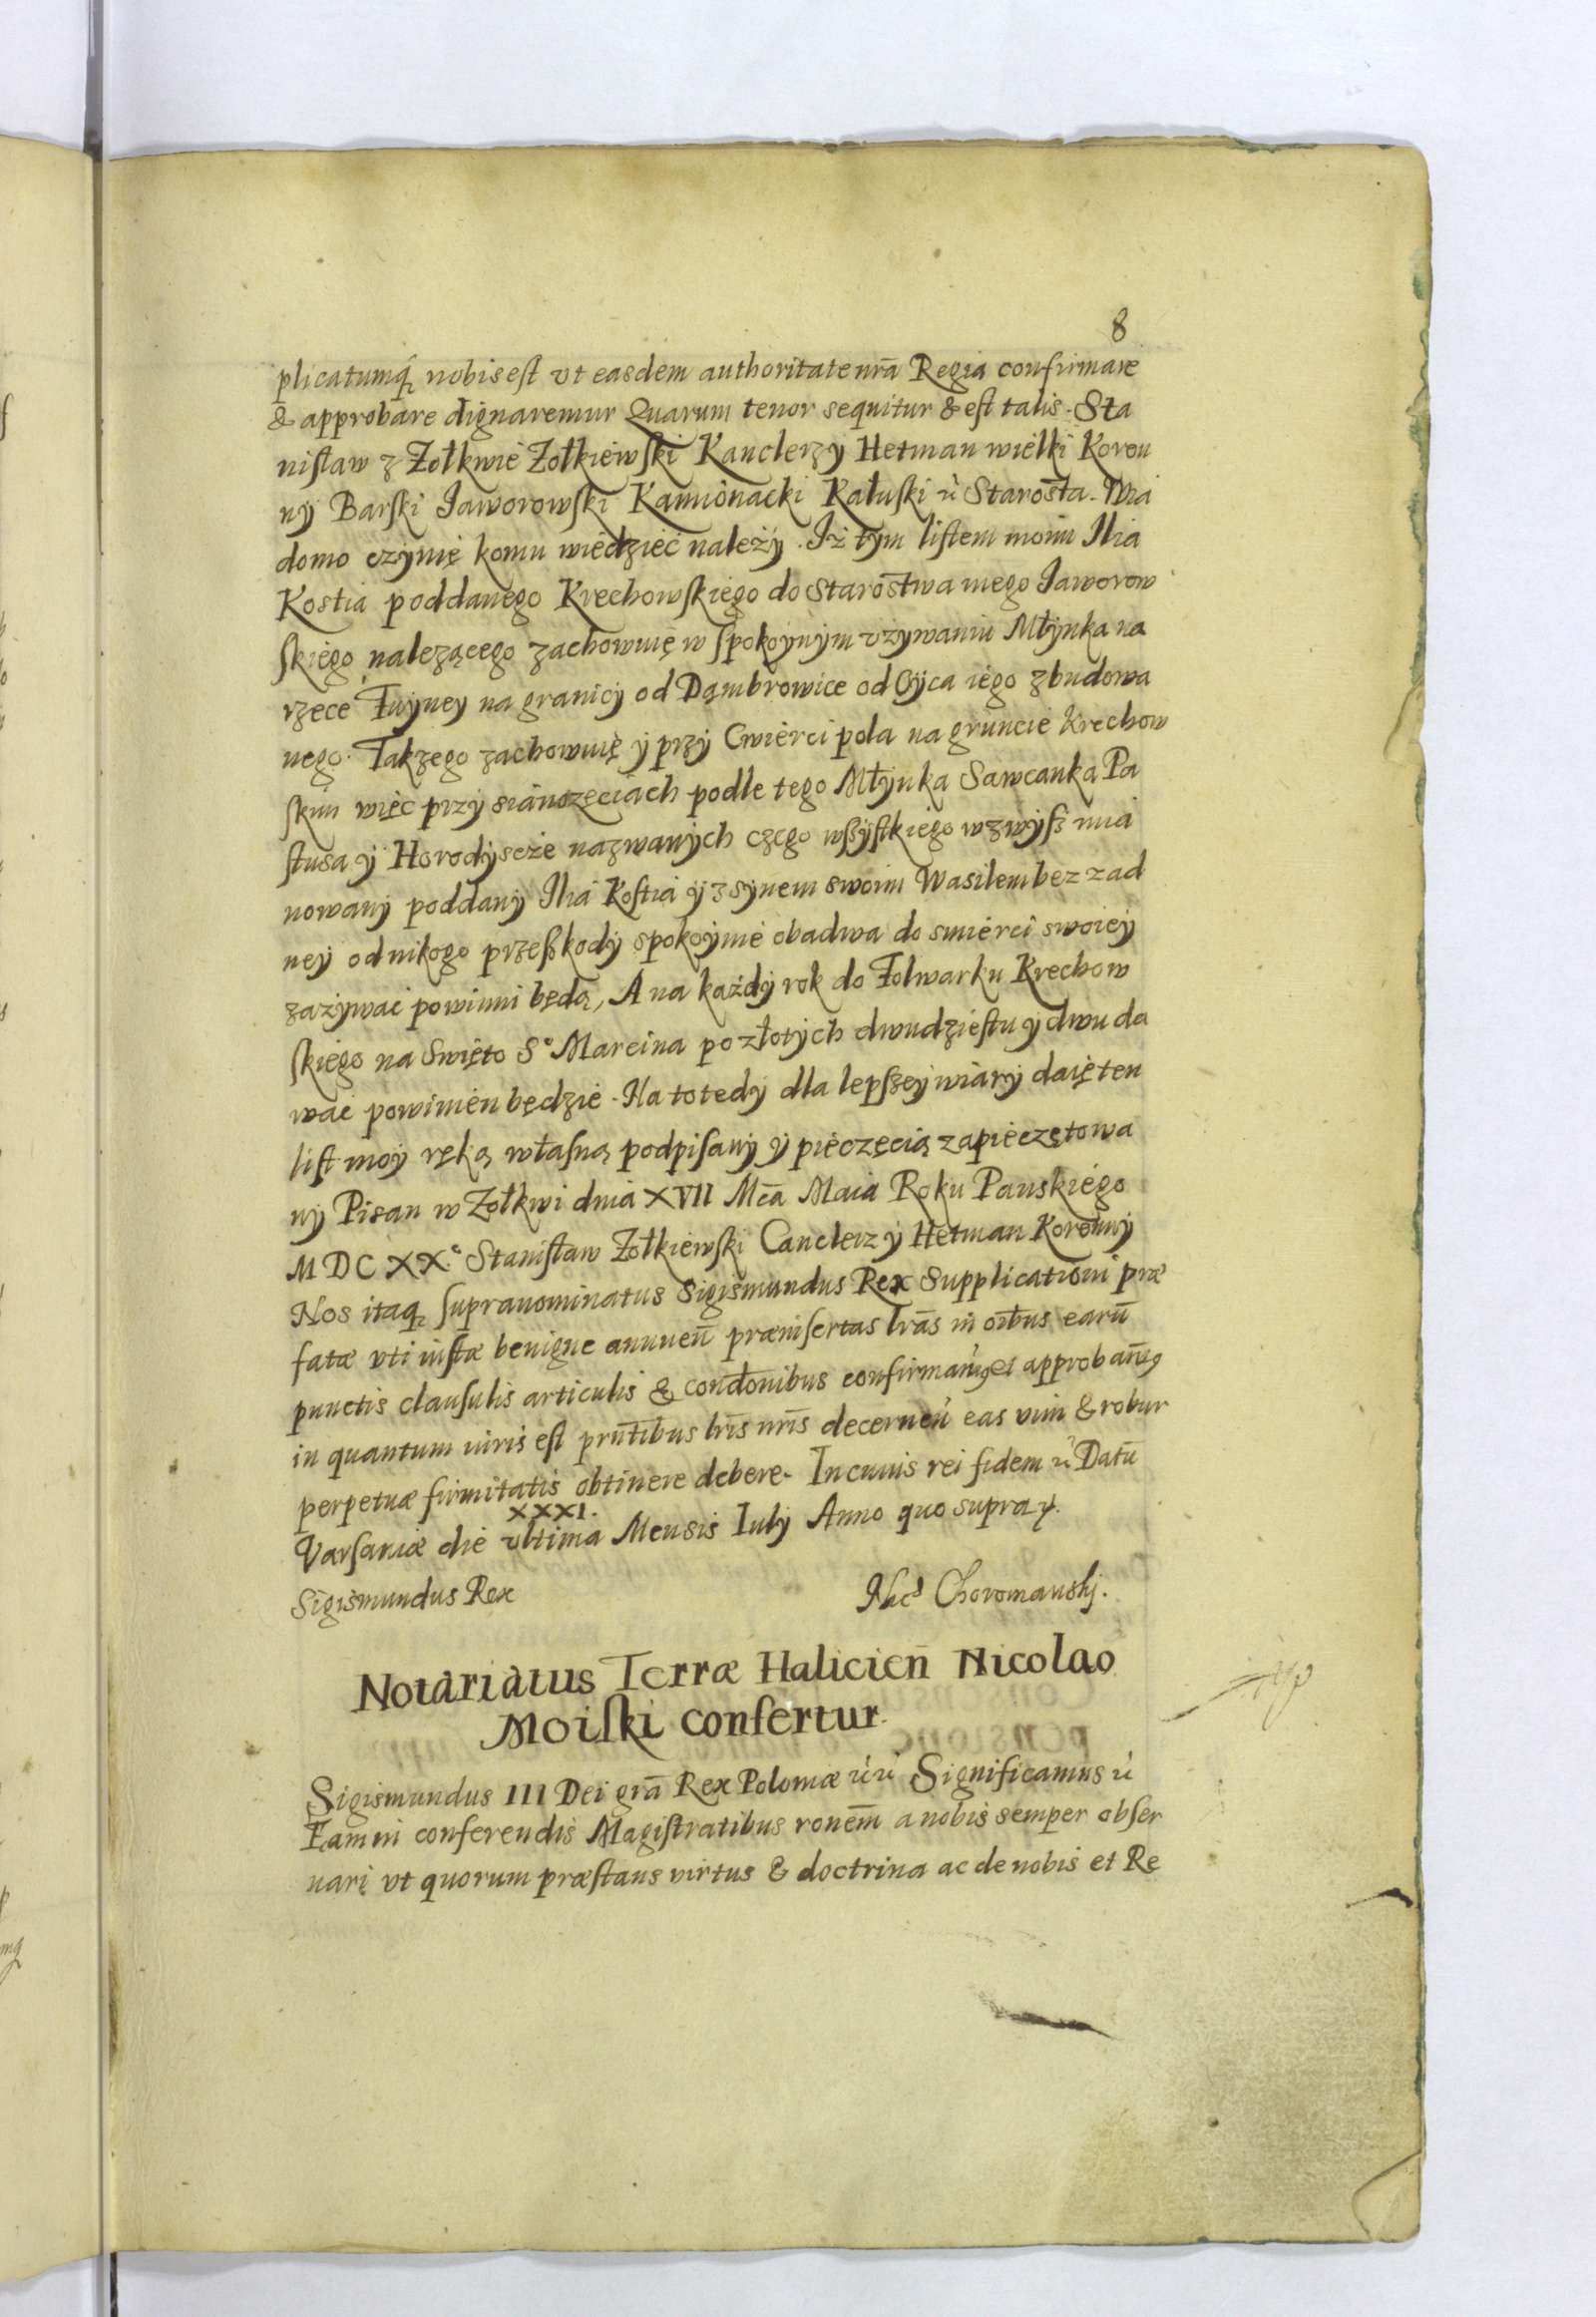 8
plicatumq́ nobis est vt easdem authoritate nr̃a Regia confirmare
& approbare dignaremur Quarum tenor sequitur & est talis. Sta
nisław z Żołkwie Żołkiewski Kanclerz y Hetman wielki Koron
ny Barski Jaworowski Kamionacki Kałuski Starosta. Wia
domo czynię komu wiedziec nalezy. Iż tym listem moim Ilia
Kostia poddanego Krechowskiego do Starostwa mego Jaworow
skiego nalezącego zachowuię w spokoynym vzywaniu Młynka na
rzece na granicy od Dąmbrowice od Oyca iego zbudowa
nego. Takzego zachowuię y przy Cwierci pola na gruncie Krechow
skim więc przy sianozęciach podle tego Młynka Sawcanka Pa
stusa y Horodyscze nazwanych czego wszystkiego wzwysz mia
nowany poddany Ilia Kostia y z synem swoim Wasilem bez zad
ney od nikogo przeszkody spokoynie obadwa do smierci swoiey
zazywac powinni będą, A na każdy rok do Folwarku Krechow
skiego na Swięto Sº Marcina po złotych dwudziestu y dwu da
wac powinien będzie. Na to tedy dla lepszey wiary daię ten
list moy ręką własną podpisany y pieczęcią zapieczętowa
ny Pisan w Żołkwi dnia XVII Mc̃a Maia Roku Panskiego
MDCXXº Stanisław Żołkiewski Canclerz y Hetman Koronny
Nos itaq supranominatus Sigismundus Rex Supplicationi præ
fatæ vti iustæ benigne annuen̄ præinsertas lr̃as in oĩbus earũ
punctis clausulis articulis & conditonibus confirmam̃ et approbam̃
in quantum iuris est pr̃ntibus lr̃is nr̃is decernen̄ eas vim & robur
perpetuæ firmitatis obtinere debere. In cuius rei fidem Datũ
XXXI.
Varsaviæ die vltima Mensis Iulij Anno quo supra
Sigismundus Rex
Choromanskj.
Notariatus Terræ Halicien̄ Nicolao
Moiski confertur.
Sigismundus III Dei grã Rex Poloniæ Significamus
Eam in conferendis Magistratibus ronẽm a nobis semper obser
uari vt quorum præstans virtus & doctrina ac de nobis et Re